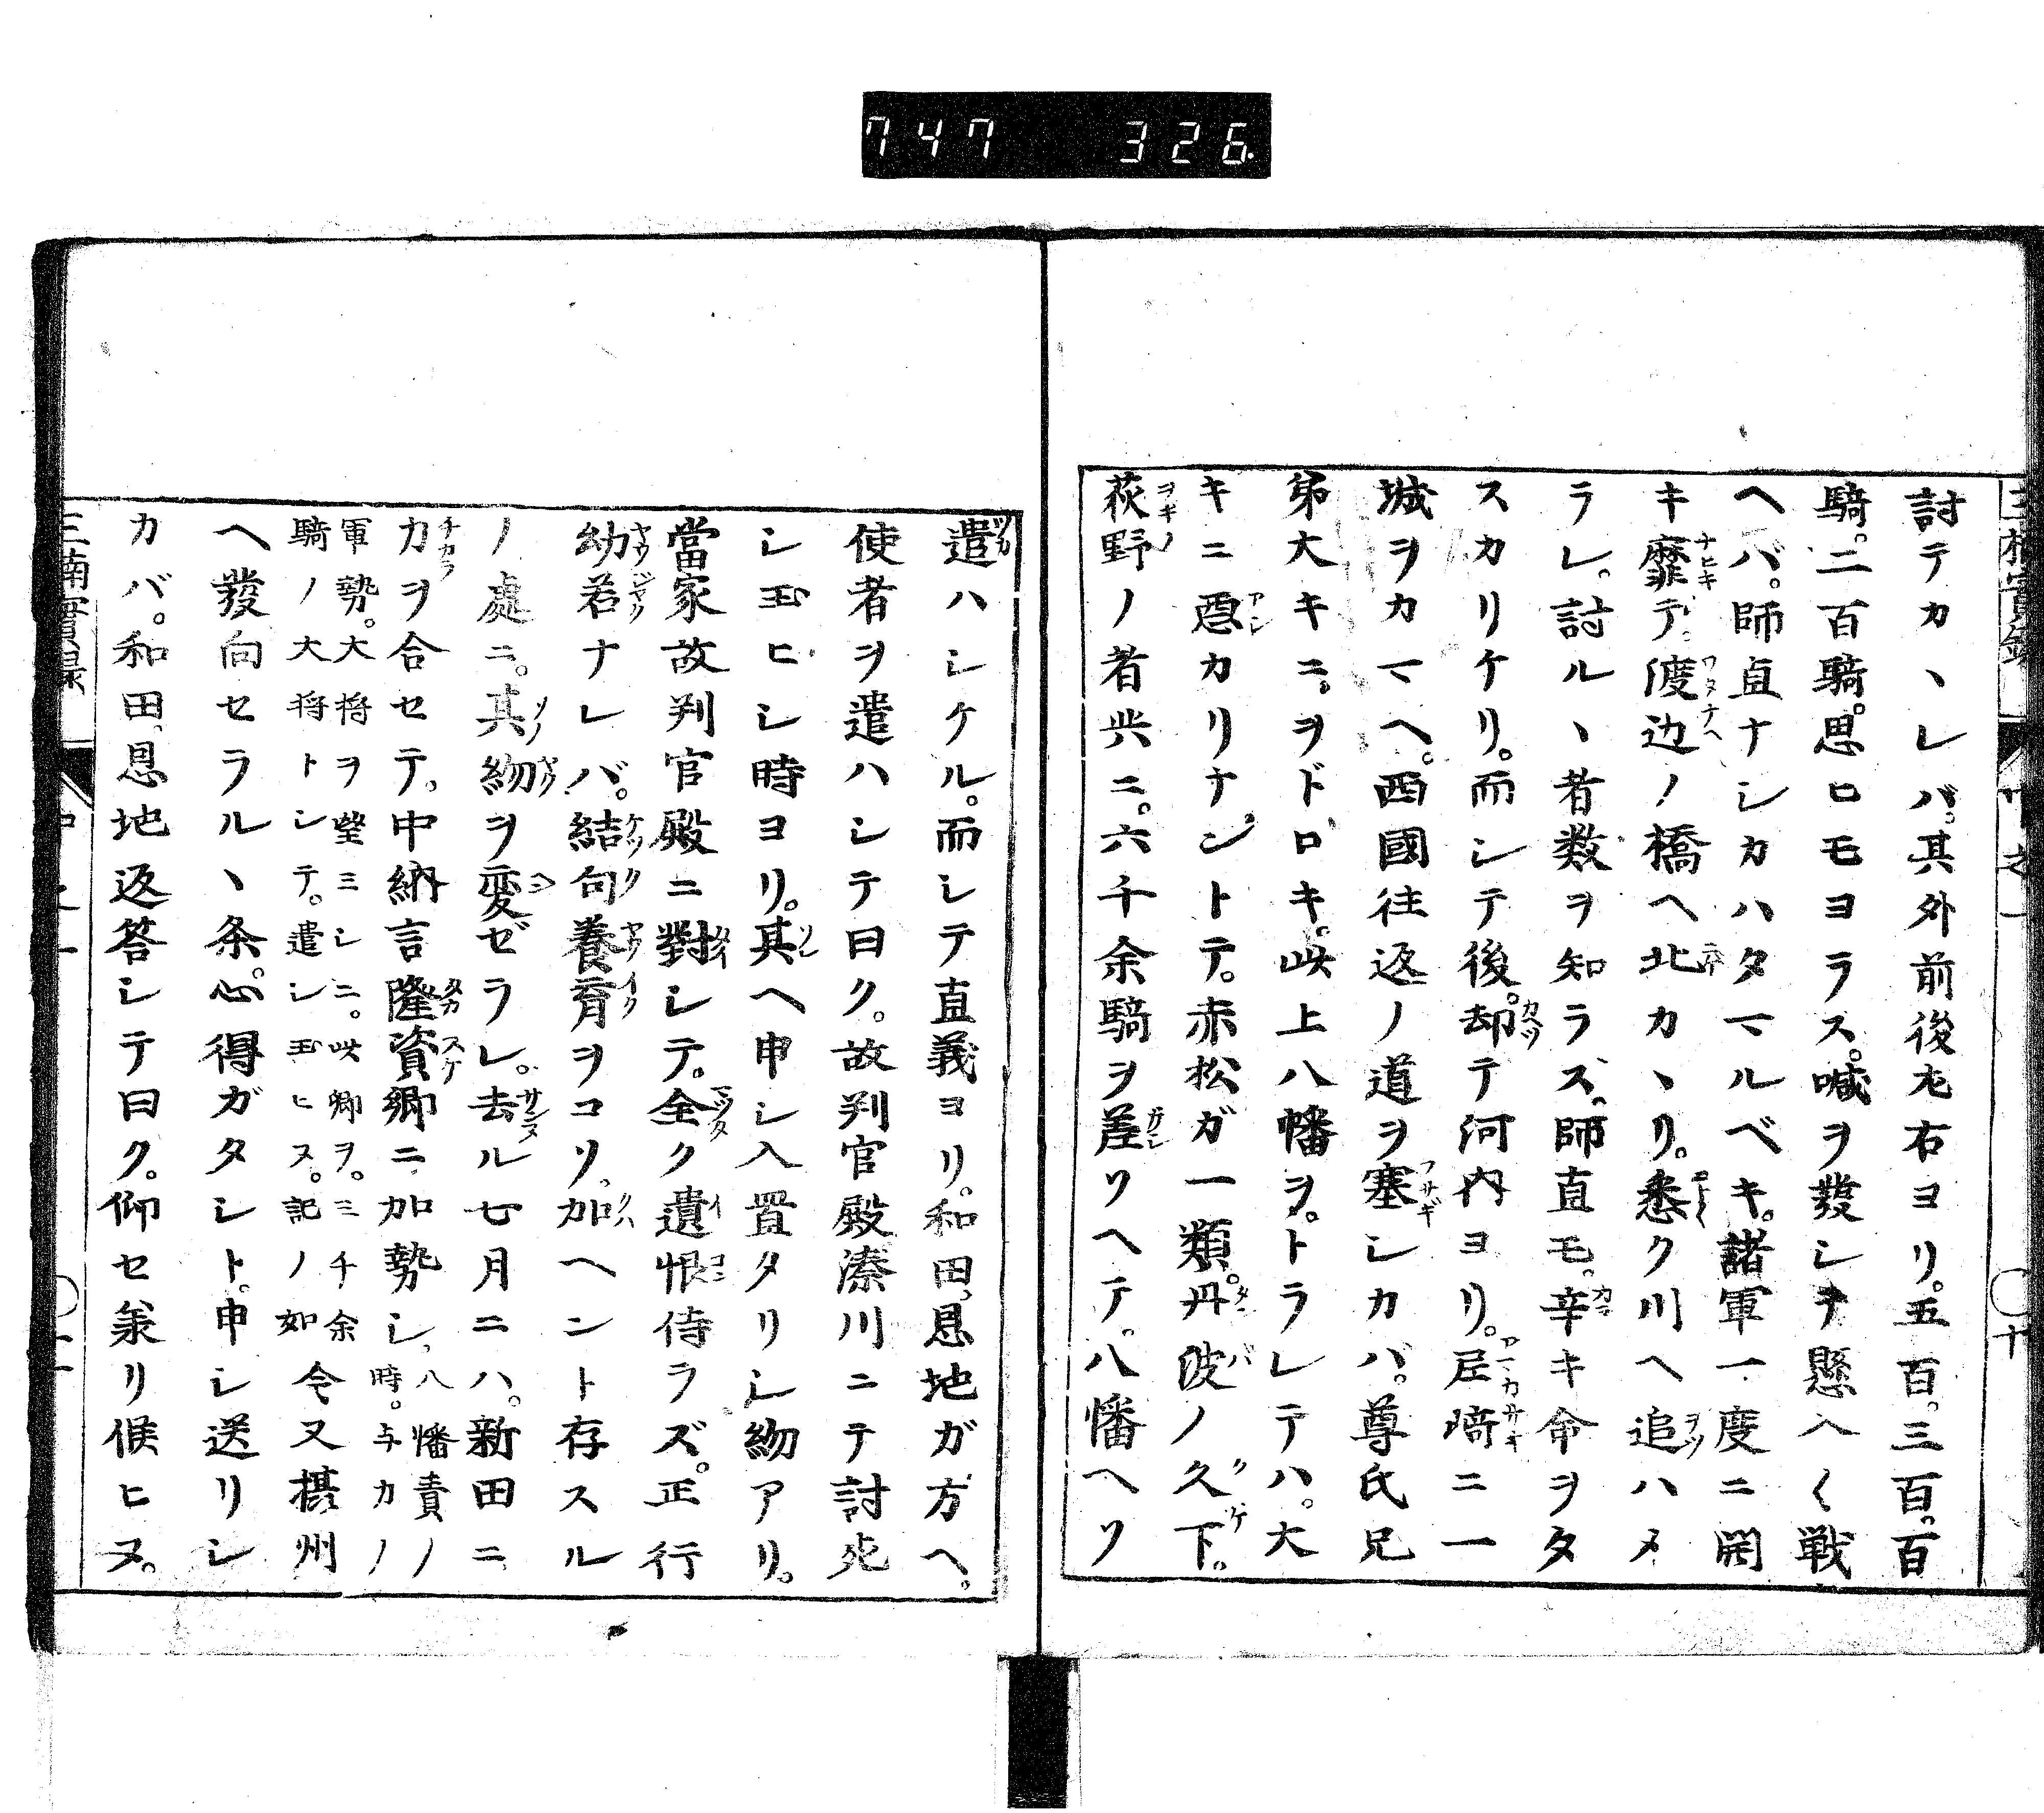 747 326.
討テカヽレバ。其外前後左右ヨリ。五百。三百。百
騎。二百騎。思ヒモヨラス。喊ヲ發シテ懸ヘ〱戦
ヘバ。師直ナシカハタマルベキ。諸軍一度ニ開
キ靡テ。渡边ノ橋ヘ北カヽリ。悉ク川ヘ追ハメ
ラレ。討ルヽ者数ヲ知ラズ。師直モ。辛キ命ヲタ
スカリケリ。而シテ後。却テ河内ヨリ。尼﨑ニ一
城ヲカマヘ。西國往返ノ道ヲ塞シカバ。尊氏兄
弟大キニ。ヲドロキ。此上八幡ヲ。トラレテハ。大
キニ悪カリナントテ。赤松ガ一類。丹波ノ久下。
荻野ノ者共ニ。六千余騎ヲ差リヘテ。八幡ヘソ
遣ハシケル。而シテ直義ヨリ。和田、恩地ガ方ヘ。
使者ヲ遣ハシテ曰ク。故判官殿湊川ニテ討死
シ玉ヒシ時ヨリ。其ヘ申シ入置タリシ約アリ。
當家故判官殿ニ對シテ。全ク遺恨侍ラズ。正行
幼若ナレバ。結句養育ヲコソ。加ヘント存スル
ノ處ニ。其約ヲ変ゼラレ。去ル七月ニハ。新田ニ
力ヲ合セテ。中納言隆資卿ニ加勢シ。八幡責ノ時。与力ノ
軍勢。大将ヲ望ミシニ。此卿ヲ。三千余
騎ノ大将トシテ。遣シ玉ヒヌ。記ノ如
今又攝州
ヘ發向セラルヽ条。心得ガタシト。申シ送リシ
カバ。和田、恩地返答シテ曰ク。仰セ承リ候ヒヌ。